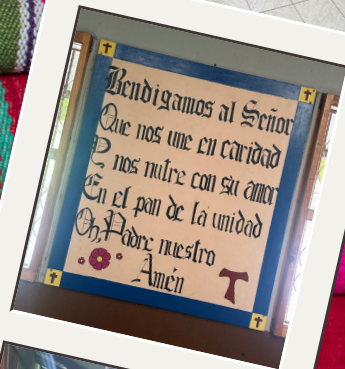 Bendigamos al Señor
Que nos une en caridad
Y nos nutre con su amor
En el pan de la unidad
Oh, Padre nuestro
Amén